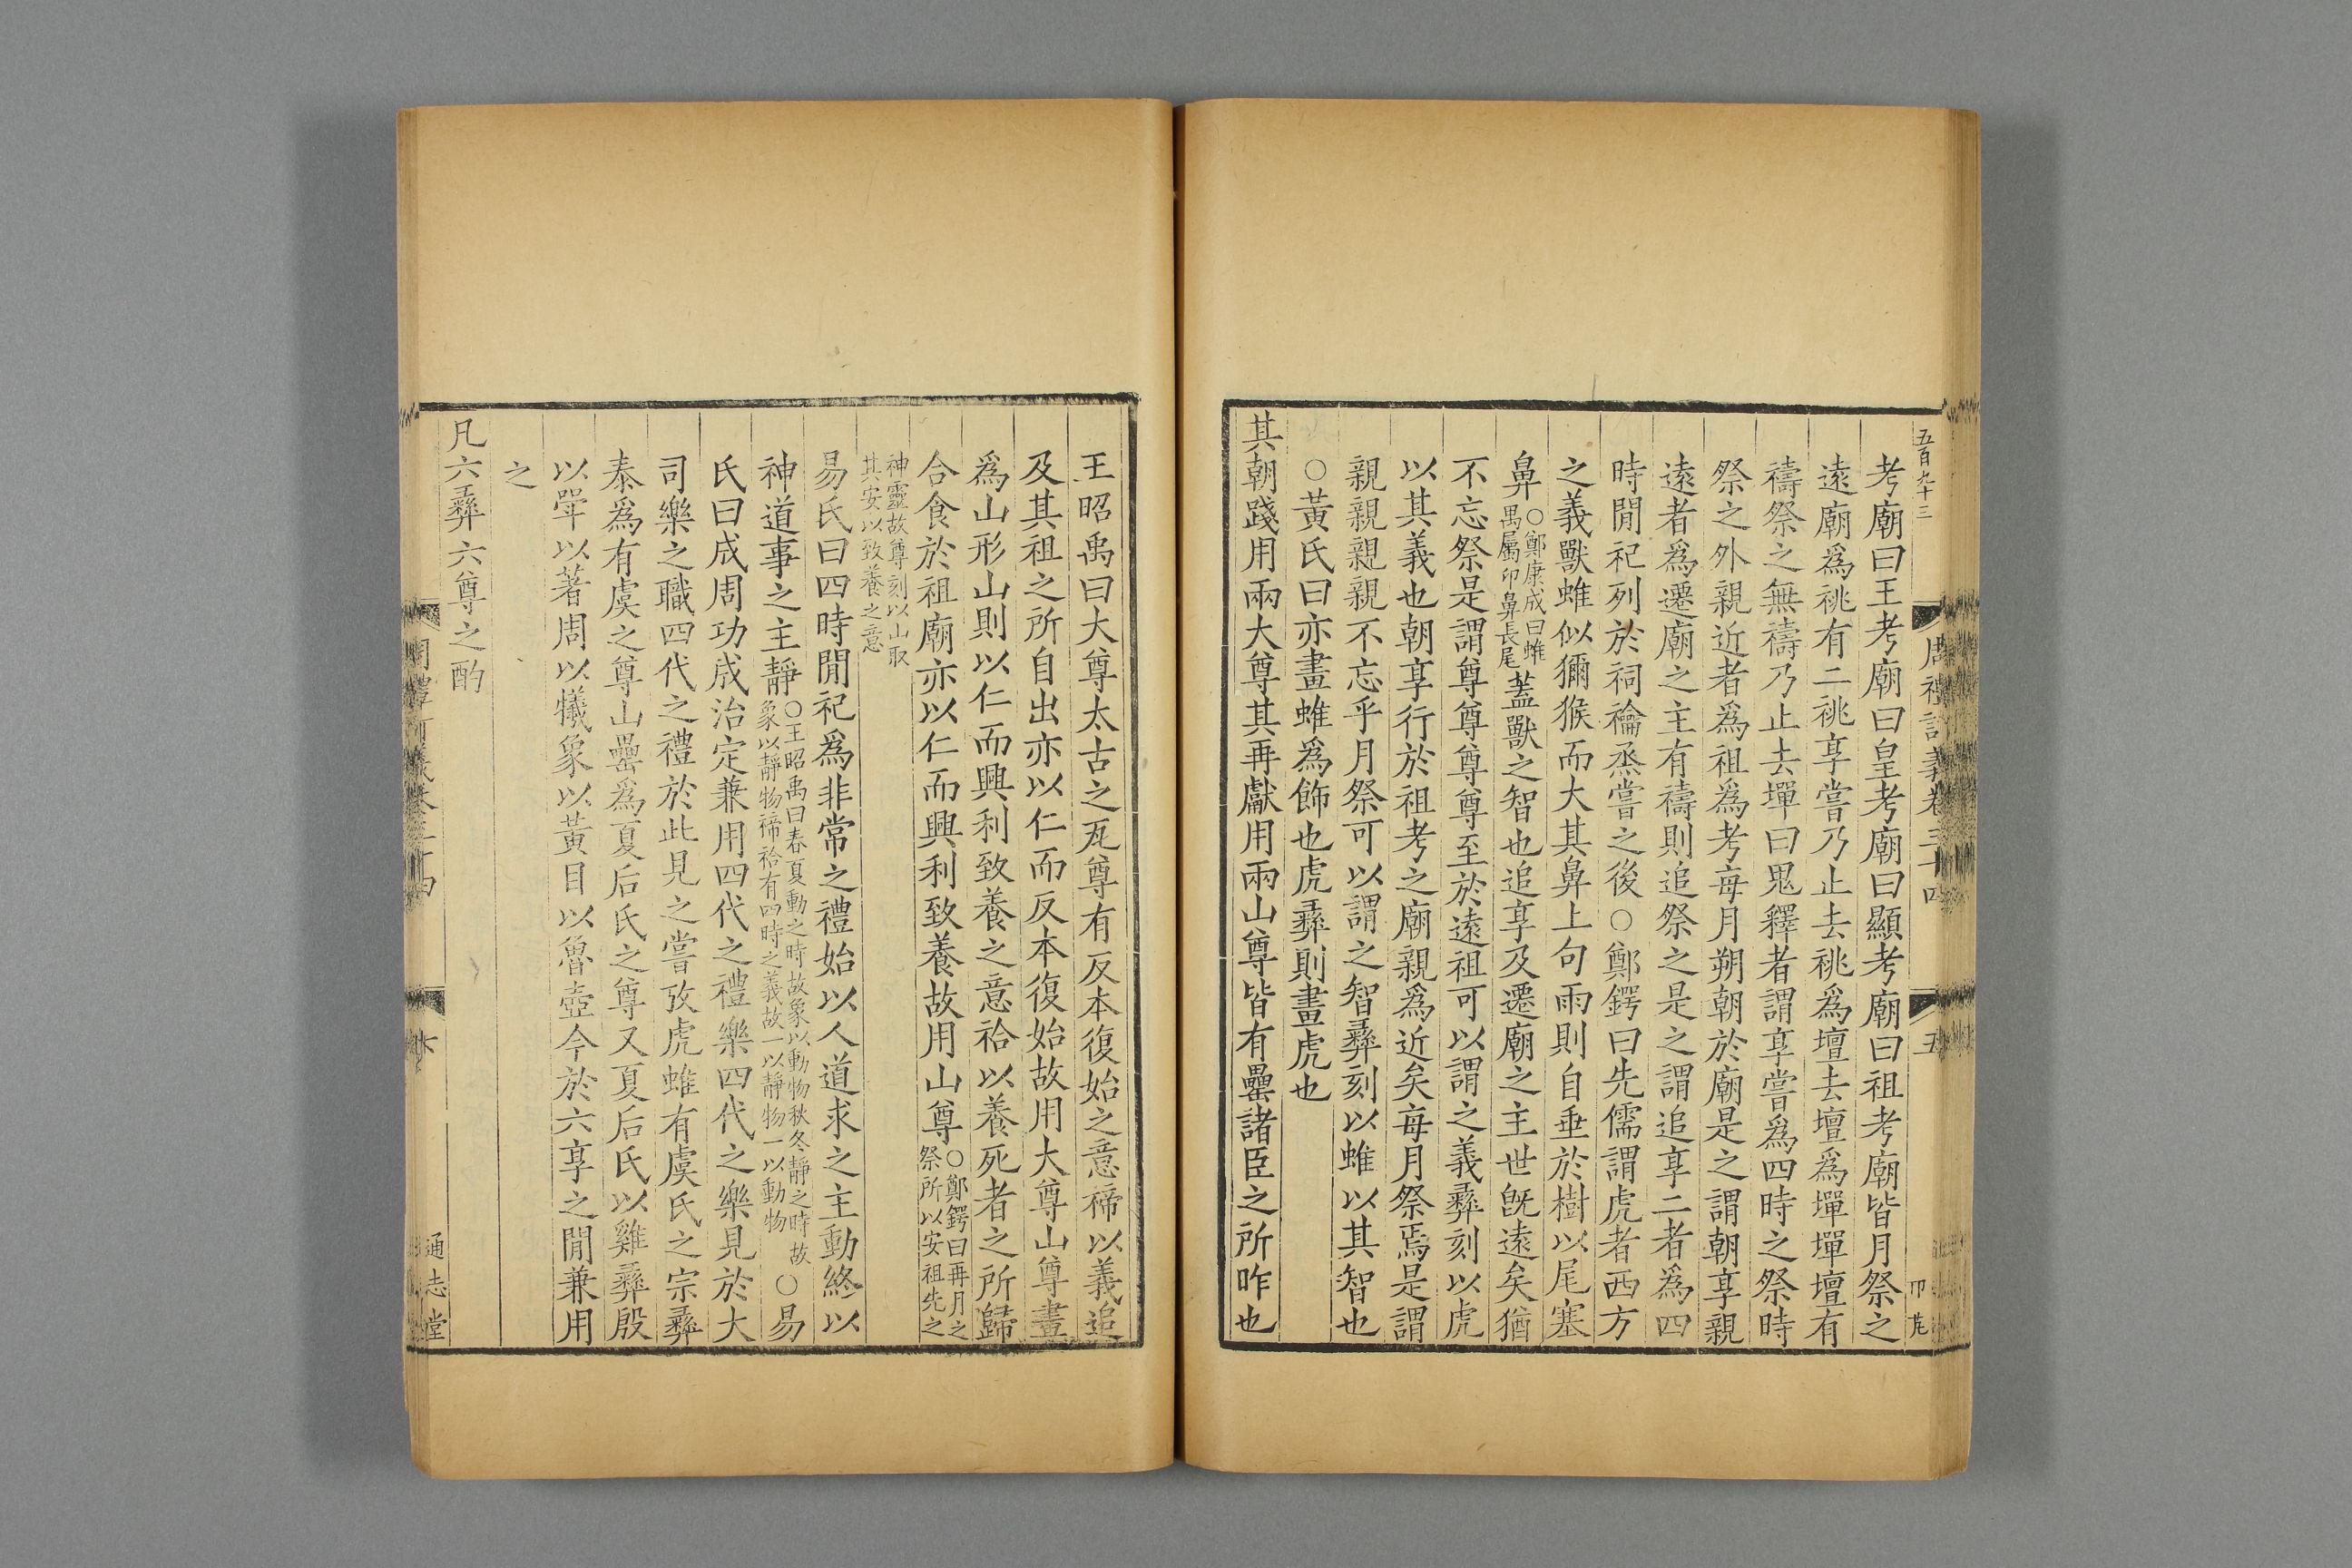 五百九十三
周禮訂義卷三十四
五
考廟曰王考廟曰皇考廟曰顯考廟曰祖考廟皆月祭之
遠廟爲祧有二祧享嘗乃止去祧爲壇去壇爲墠墠壇有
禱祭之無禱乃止去墠曰鬼釋者謂享嘗爲四時之祭時
祭之外親近者爲祖爲考每月朔朝於廟是之謂朝享親
遠者爲遷廟之主有禱則追祭之是之謂追享二者爲四
時閒祀列於祠禴烝嘗之後○鄭鍔曰先儒謂虎者西方
之義獸蜼似獼猴而大其鼻上句雨則自垂於樹以尾塞
鼻○鄭康成曰蜼禺屬卬鼻長尾蓋獸之智也追享及遷廟之主世旣遠矣猶
不忘祭是謂尊尊尊尊至於遠祖可以謂之義彝刻以虎
以其義也朝享行於祖考之廟親爲近矣每月祭焉是謂
親親親親不忘乎月祭可以謂之智彝刻以蜼以其智也
○黃氏曰亦畫蜼爲飾也虎彝則畫虎也
其朝踐用兩大尊其再獻用兩山尊皆有罍諸臣之所昨也
王昭禹曰大尊太古之瓦尊有反本復始之意禘以義追
及其祖之所自出亦以仁而反本復始故用大尊山尊畫
爲山形山則以仁而興利致養之意祫以養死者之所歸
合食於祖廟亦以仁而興利致養故用山尊○鄭鍔曰再月之祭所以安祖先之
神靈故尊刻以山取其安以致養之意
易氏曰四時閒祀爲非常之禮始以人道求之主動終以
神道事之主靜○王昭禹曰春夏動之時故象以動物秋冬靜之時故象以靜物禘祫有四時之義故一以靜物一以動物○易
氏曰成周功成治定兼用四代之禮樂四代之樂見於大
司樂之職四代之禮於此見之嘗攷虎蜼有虞氏之宗彝
泰爲有虞之尊山罍爲夏后氏之尊又夏后氏以雞彝殷
以斝以著周以犧象以黃目以魯壺今於六享之閒兼用
之
凡六彝六尊之酌
通志堂